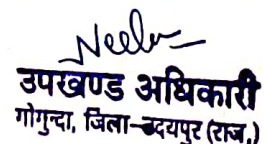 उपखण्ड अधिकारी
गोगुन्दा, जिला-उदयपुर (राज.)